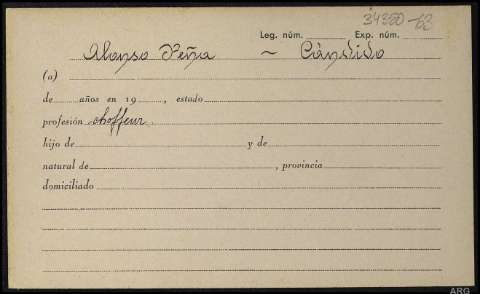 34350-63
Leg. núm. Exp. núm.
Alonso Peña ~ Cándido
(a)
de años en 19 , estado
profesión choffeur
hijo de y de
natural de , provincia
domiciliado
ARG